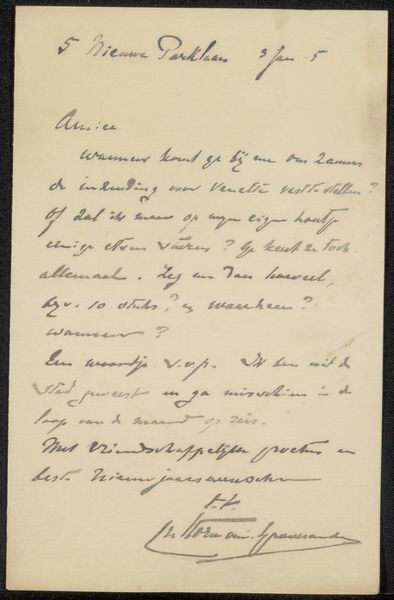 5 Nieuwe Parklaan 3 Jan 5
Amice
Wanneer komt ge bij me om samen
de inzending voor Venetië vast te stellen?
Of zal ik maar op mijn eigen houtje
eenige etsen sturen? Ge kent ze toch
allemaal. Zeg me dan hoeveel,
bijv. 10 stuks? en waarheen?
wanneer?
Een woordje s.v.p. Ik ben uit de
stad geweest en ga misschien in de
loop van de maand op reis.
Met vriendschappelijke groeten en
beste Nieuwjaarswenschen
t.t.
Ch Storm van 's Gravesande